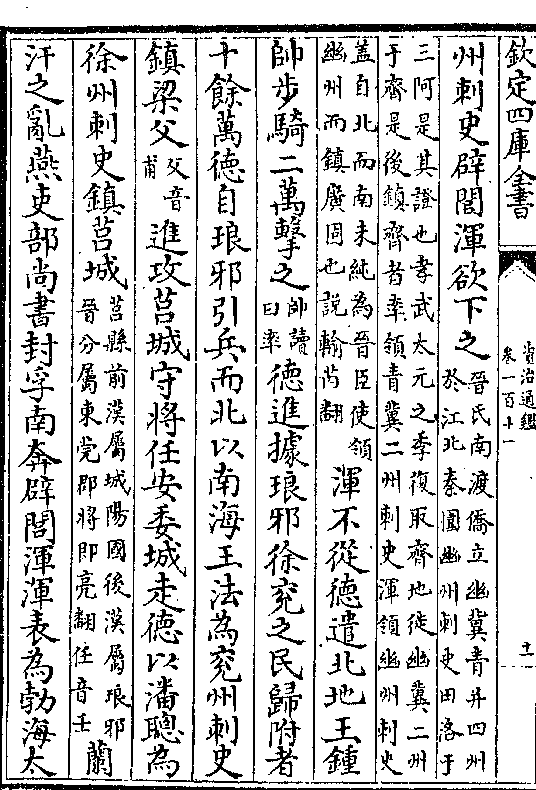 欽定四庫全書
資治通鑑
卷一百十一
十一
州刺史辟閭渾欲下之
晉氏南渡僑立幽冀青并四州
於江北秦圍幽州刺史田洛于
三阿是其證也孝武太元之季復取齊地徙幽冀二州
于齊是後鎮齊者率領青冀二州刺史渾領幽州刺史
蓋自北而南未純為晉臣使領
幽州而鎮廣固也說輸芮翻
渾不從德遣北地王鍾
帥步騎二萬擊之
帥讀
曰率
德進據琅邪徐兖之民歸附者
十餘萬德自琅邪引兵而北以南海王法為兖州刺史
鎮梁父
父音
甫
進攻莒城守將任安委城走德以潘聰為
徐州刺史鎮莒城
莒縣前漢屬城陽國後漢屬琅邪
晉分屬東莞郡將即亮翻任音壬
蘭
汗之亂燕吏部尚書封孚南奔辟閭渾渾表為勃海太